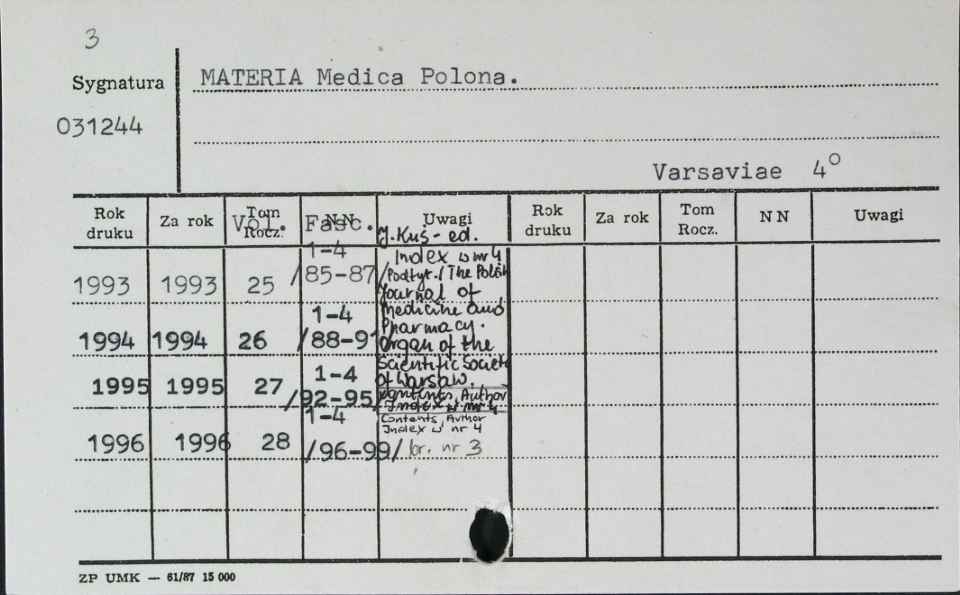 3
Sygnatura MATERIA Medica Polona.
031244
Varsaviae 4°
Rok druku Za rok Tom Rocz. Vol. NN Fasc. Uwagi Rok druku Za rok Tom Rocz. NN Uwagi
J. Kuś - ed.
1-4 Index w nr 4
1993 1993 25 /85-87/ Podtyt. / The Polish
Journal of
1-4 Medicine and
Pharmacy.
1994 1994 26 /88-91 Organ of the
Scientific Society
1-4 of Warsaw.
1995 1995 27 /92-95/ Contents, Author
Index w nr 4
1-4 Contents, Author
Index w nr 4
1996 1996 28 /96-99/ br. nr 3
ZP UMK — 61/87 15 000